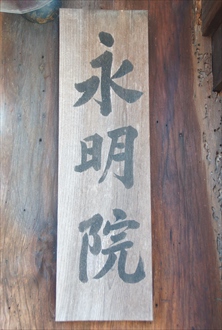 永明院